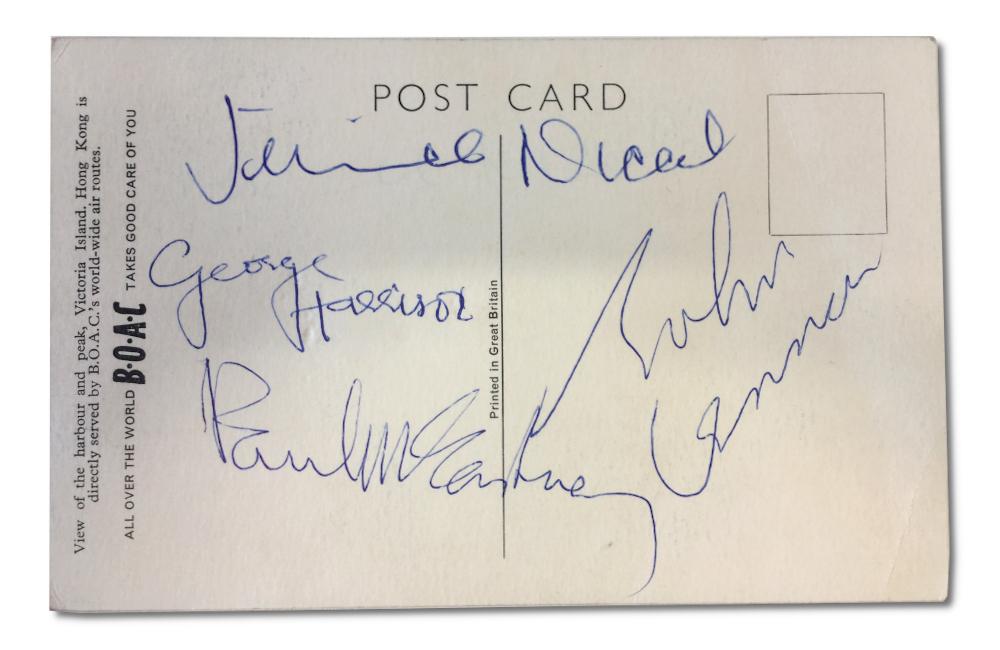 POST CARD
Jimmie Nicol
George
Harrison
Paul McCartney
John
Lennon
View of the harbour and peak, Victoria Island. Hong Kong is
directly served by B.O.A.C.'s world-wide air routes.
ALL OVER THE WORLD B·O·A·C TAKES GOOD CARE OF YOU
Printed in Great Britain